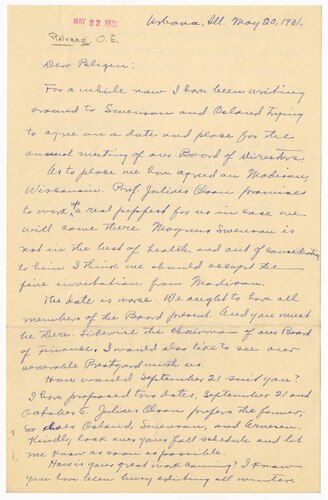 MAY 22 1931
Rölvaag, O. E.
Urbana, Ill. May 20, 1931.
Dear Blegen:
For a while now I have been writing
around to Swenson and Osland trying
to agree on a date and place for the
annual meeting of our Board of Directors.
As to place we have agreed on Madison,
Wisconsin. Prof. Julius Olson promises
to work up a real pepfest for us in case we
will come there. Magnus Swenson is
not in the best of health, and out of consideration
to him I think we should accept the
fine invitation from Madison.
The date is worse. We ought to have all
members of the Board present. And you must
be there. Likewise the Chairman of our Board
of Finance. I would also like to see our
venerable Prestgard with us.
How would September 21 suit you?
I have proposed two dates, September 21 and
October 5. Julius Olson prefers the former;
so does Osland, Swenson, and Arneson.
Kindly look over your fall schedule and let
me know as soon as possible.
How is your great work coming? I know
you have been busy editing all winter